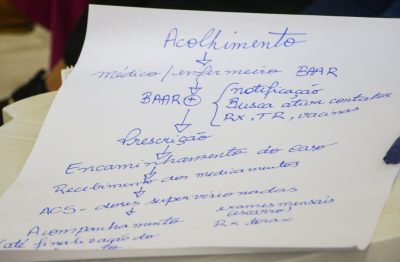 Acolhimento
médico/enfermeiro BAAR
BAAR +
notificação
Busca ativa contatos
Rx, TR, vacinas
Prescrição
Encaminhamento do Caso
Recebimento dos medicamentos
ACS - doses supervisionadas
Acompanhamento
(até finalização do
exames mensais
(escarro)
Rx torax